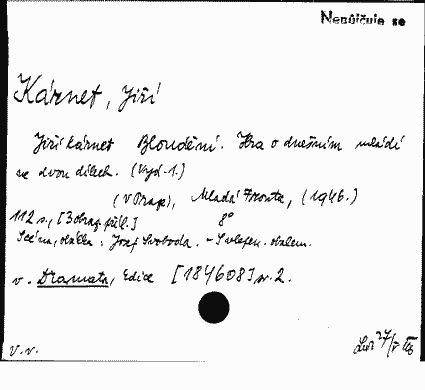 Nepůjčuje se
Kárnet, Jiří
Jiří Kárnet Bloudění. Hra o dnešním mládí
ve dvou dílech. (Vyd. 1.)
(V Praze), Mladá Fronta, (1946.)
112 s., [3 obraz. příl.] 8°
Scéna, obálka: Josef Svoboda. - S vlep. obalem.
v. Dramata, Edice [184608] sv. 2.
V. v.